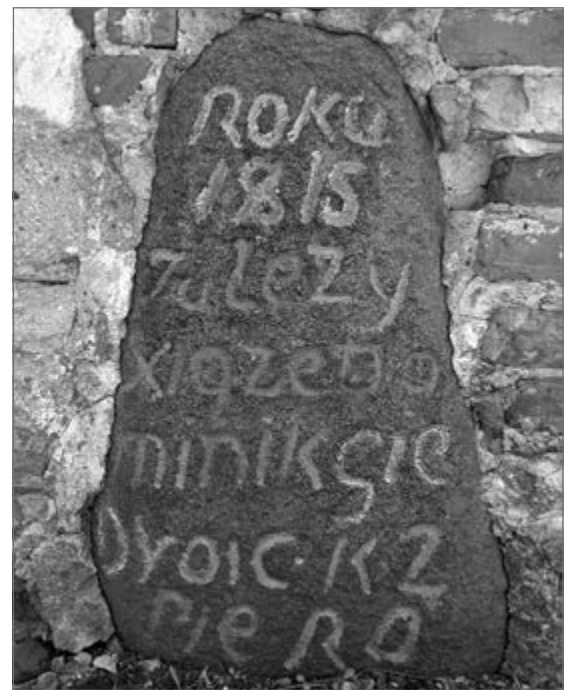 ROKU
1815
TuLEZY
XIĄZE DO
MINIK GIE
DROIC·K·Z
PIERO